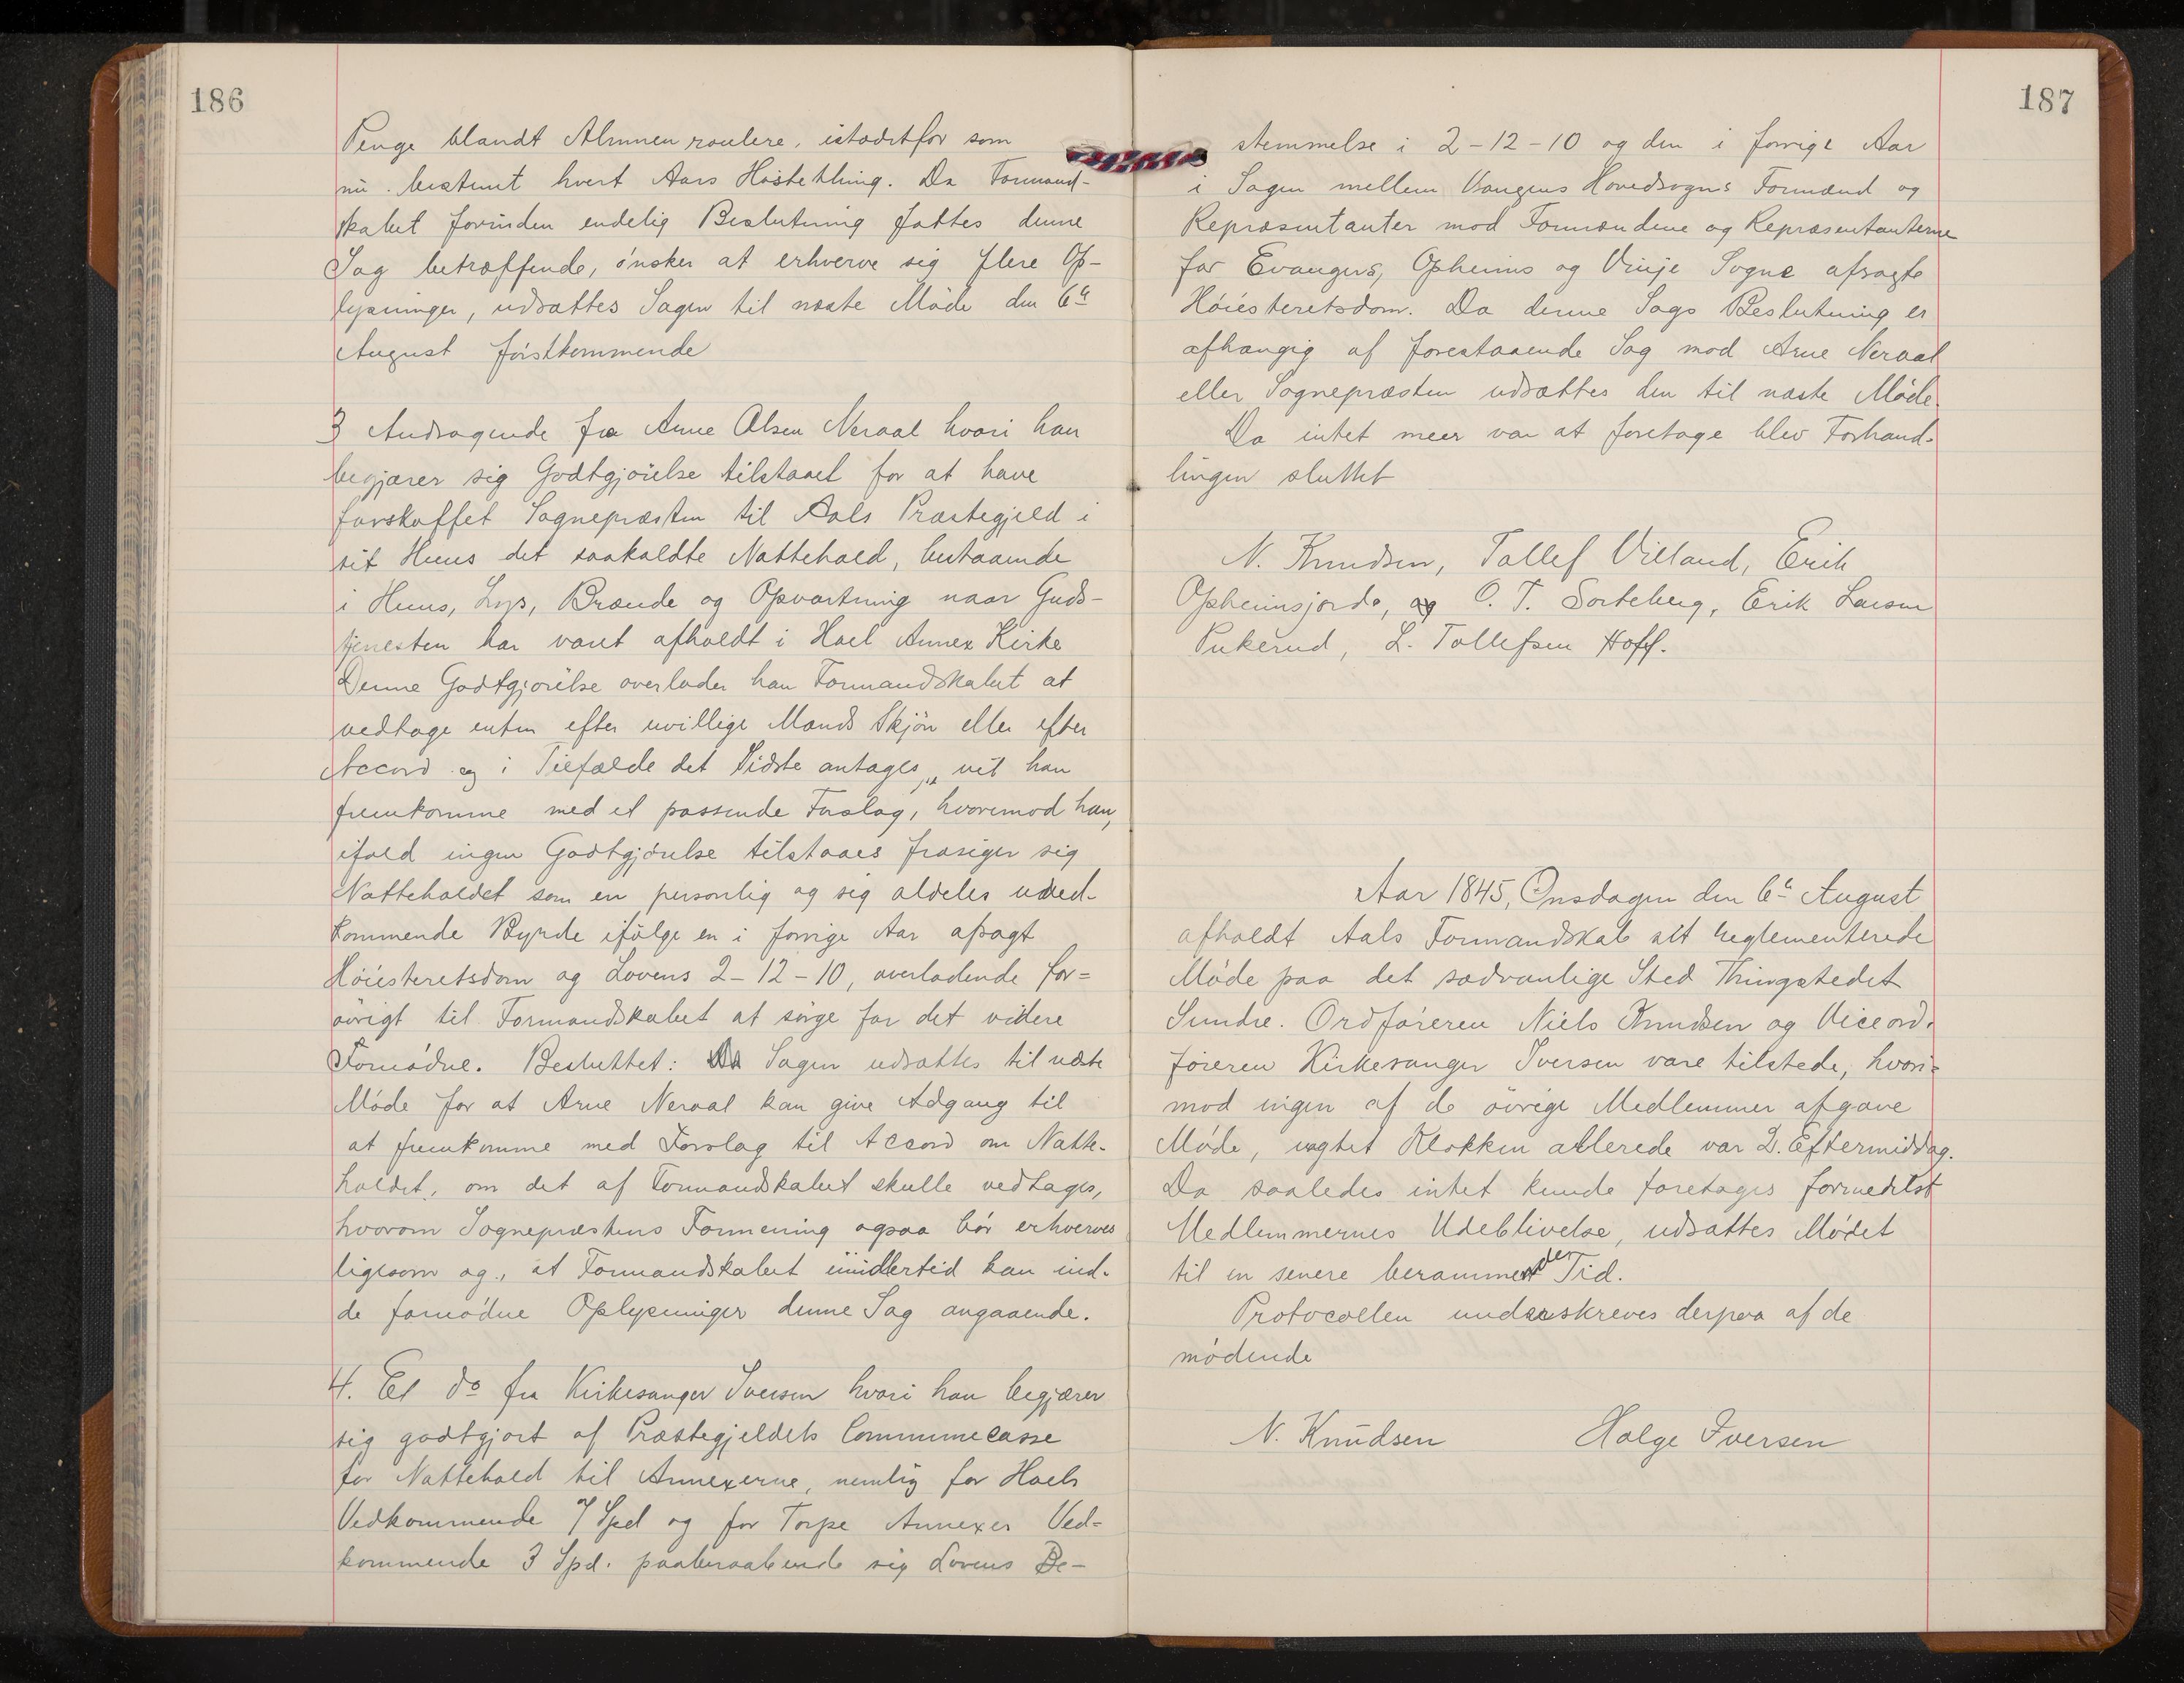 186
Penge blandt Almuen roulere, istædetfor som
nu bestemt hvert Aars Høstething. Da Formand-
skabet forinden endelig Beslutning fattes denne
Sag betræffende, ønsker at erhverve sig flere Op-
lysninger, udsættes Sagen til næste Møde den 6te
August førstkommende
3 Andragende fra Arne Olsen Neraal hvori han
begjærer sig Godtgjørelse tilstaaet for at have
forskaffet Sognepræsten til Aals Præstegjeld i
sit Huus det saakaldte Nattehold, bestaaende
i Huus, Lys, Brænde og Opvartning naar Guds-
tjenesten har været afholdt i Hoel Annex Kirke
Denne Godtgjørelse overlader han Formandskabet at
vedtage enten efter uvillige Mænds Skjøn eller efter
Accord og i Tilfælde det Sidste antages, vil han
fremkomme med et passende Forslag, hvorimod han,
ifald ingen Godtgjørelse tilstaaes frasiger sig
Natteholdet som en personlig og sig aldeles uved-
kommende Byrde ifølge en i forrige Aar afsagt
Høiesteretsdom og Lovens 2-12-10, overladende for=
øvrigt til Formandskabet at sørge for det videre
Fornødne. Besluttet: Sagen udsættes til næste
Møde for at Arne Neraal kan give Adgang til
at fremkomme med Forslag til Accord om Natte-
holdet, om det af Formandskabet skulle vedtages,
hvorom Sognepræstens Formening ogsaa bør erhverves
ligesom og, at Formandskabet imidlertid kan ind-
de fornødne Oplysninger denne Sag angaaende.
4. Et do fra Kirkesanger Iversen hvori han begjærer
sig godtgjort af Præstegjeldets Communecasse
for Nattehold til Annexerne, nemlig for Hoels
Vedkommende 7 Spd og for Torpe Annexes Ved=
kommende 3 Spd. paaberaabende sig Lovens Be-
187
stemmelse i 2-12-10 og den i forrige Aar
i Sagen mellem Vangens Hovedsogns Formænd og
Repræsentanter mod Formændene og Repræsentanterne
for Evangers, Opheims og Vinje Sogne afsagte
Høiesteretsdom. Da denne Sags Beslutning er
afhængig af forestaaende Sag mod Arne Neraal
eller Sognepræsten udsættes den til næste Møde.
Da intet meer var at foretage blev Forhand-
lingen sluttet
N. Knudsen, Tollef Villand, Erik
Opheimsjorde, og O. T. Sorteberg, Erik Larsen
Pukerud, L. Tollefsen Hoff.
Aar 1845, Onsdagen den 6te August
afholdt Aals Formandskab sit reglementerede
Møde paa det sædvanlige Sted Thingstedet
Sundre. Ordføreren Niels Knudsen og Viceord-
føreren Kirkesanger Iversen vare tilstede, hvori=
mod ingen af de øvrige Medlemmer afgave
Møde, uagtet Klokken allerede var 2. Eftermiddag.
Da saaledes intet kunde foretages formedelst
Medlemmernes Udeblivelse, udsættes Mødet
til en senere berammende Tid.
Protocollen underskreves derpaa af de
mødende
N. Knudsen Holge Iversen